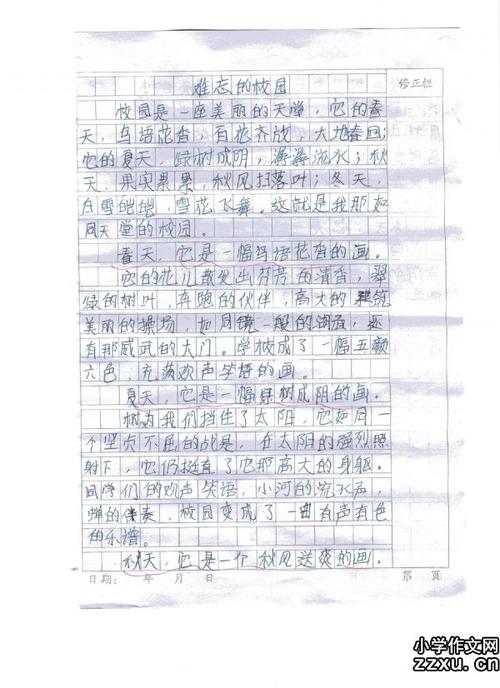 难忘的校园
修正栏
校园是一座美丽的天堂,它的春
天,鸟语花香,百花齐放,大地春回;
它的夏天,绿树成阴,潺潺流水;秋
天,果实累累,秋风扫落叶;冬天,
白雪皑皑,雪花飞舞。这就是我那如
同天堂的校园。
春天,它是一幅鸟语花香的画。
它的花儿散发出芬芳的清香,翠
绿的树叶,奔跑的伙伴,高大的建筑
美丽的操场,如同镜一般的湖面,还
有那威武的大门。学校成了一幅五颜
六色,充满欢声笑语的画。
夏天,它是一幅绿树成阴的画。
树为我们挡住了太阳,它如同一
个坚贞不屈的战是,在太阳的强烈照
射下,它仍挺直了它那高大的身躯。
同学们的欢声笑语,小河的流水声,
蝉的伴奏,校园变成了一曲有声有色
的乐谱。
秋天,它是一个秋风送爽的画。
日期: 年 月 日 第 页
小学作文网
zzxu.cn